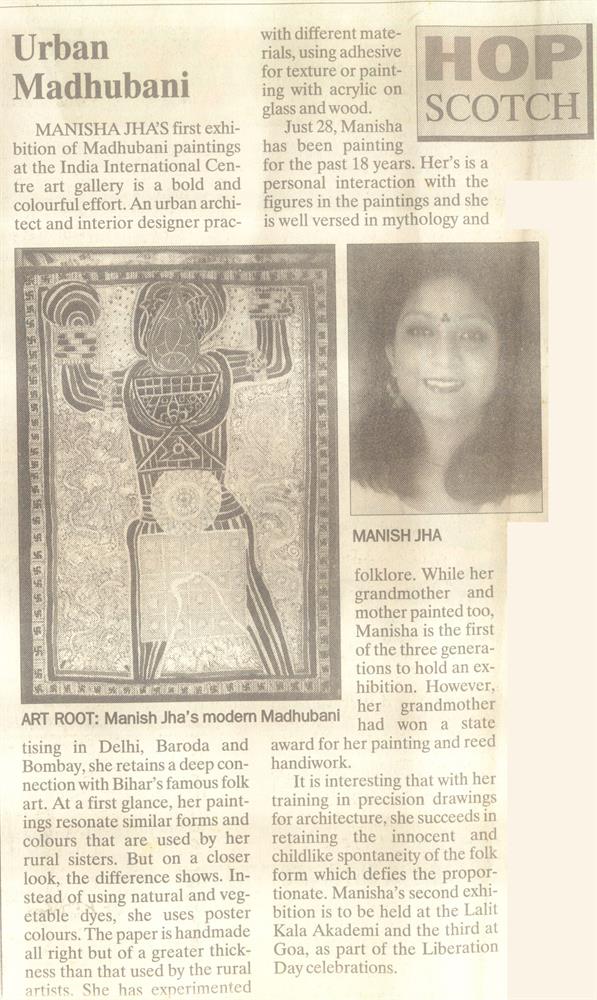 Urban
Madhubani
MANISHA JHA'S first exhi-
bition of Madhubani paintings
at the India International Cen-
tre art gallery is a bold and
colourful effort. An urban archi-
tect and interior designer prac-
tising in Delhi, Baroda and
Bombay, she retains a deep con-
nection with Bihar's famous folk
art. At a first glance, her paint-
ings resonate similar forms and
colours that are used by her
rural sisters. But on a closer
look, the difference shows. In-
stead of using natural and veg-
etable dyes, she uses poster
colours. The paper is handmade
all right but of a greater thick-
ness than that used by the rural
artists. She has experimented
with different mate-
rials, using adhesive
for texture or paint-
ing with acrylic on
glass and wood.
Just 28, Manisha
has been painting
for the past 18 years. Her's is a
personal interaction with the
figures in the paintings and she
is well versed in mythology and
folklore. While her
grandmother and
mother painted too,
Manisha is the first
of the three genera-
tions to hold an ex-
hibition. However,
her grandmother
had won a state
award for her painting and reed
handiwork.
It is interesting that with her
training in precision drawings
for architecture, she succeeds in
retaining the innocent and
childlike spontaneity of the folk
form which defies the propor-
tionate. Manisha's second exhi-
bition is to be held at the Lalit
Kala Akademi and the third at
Goa, as part of the Liberation
Day celebrations.
HOP
SCOTCH
MANISH JHA
ART ROOT: Manish Jha's modern Madhubani